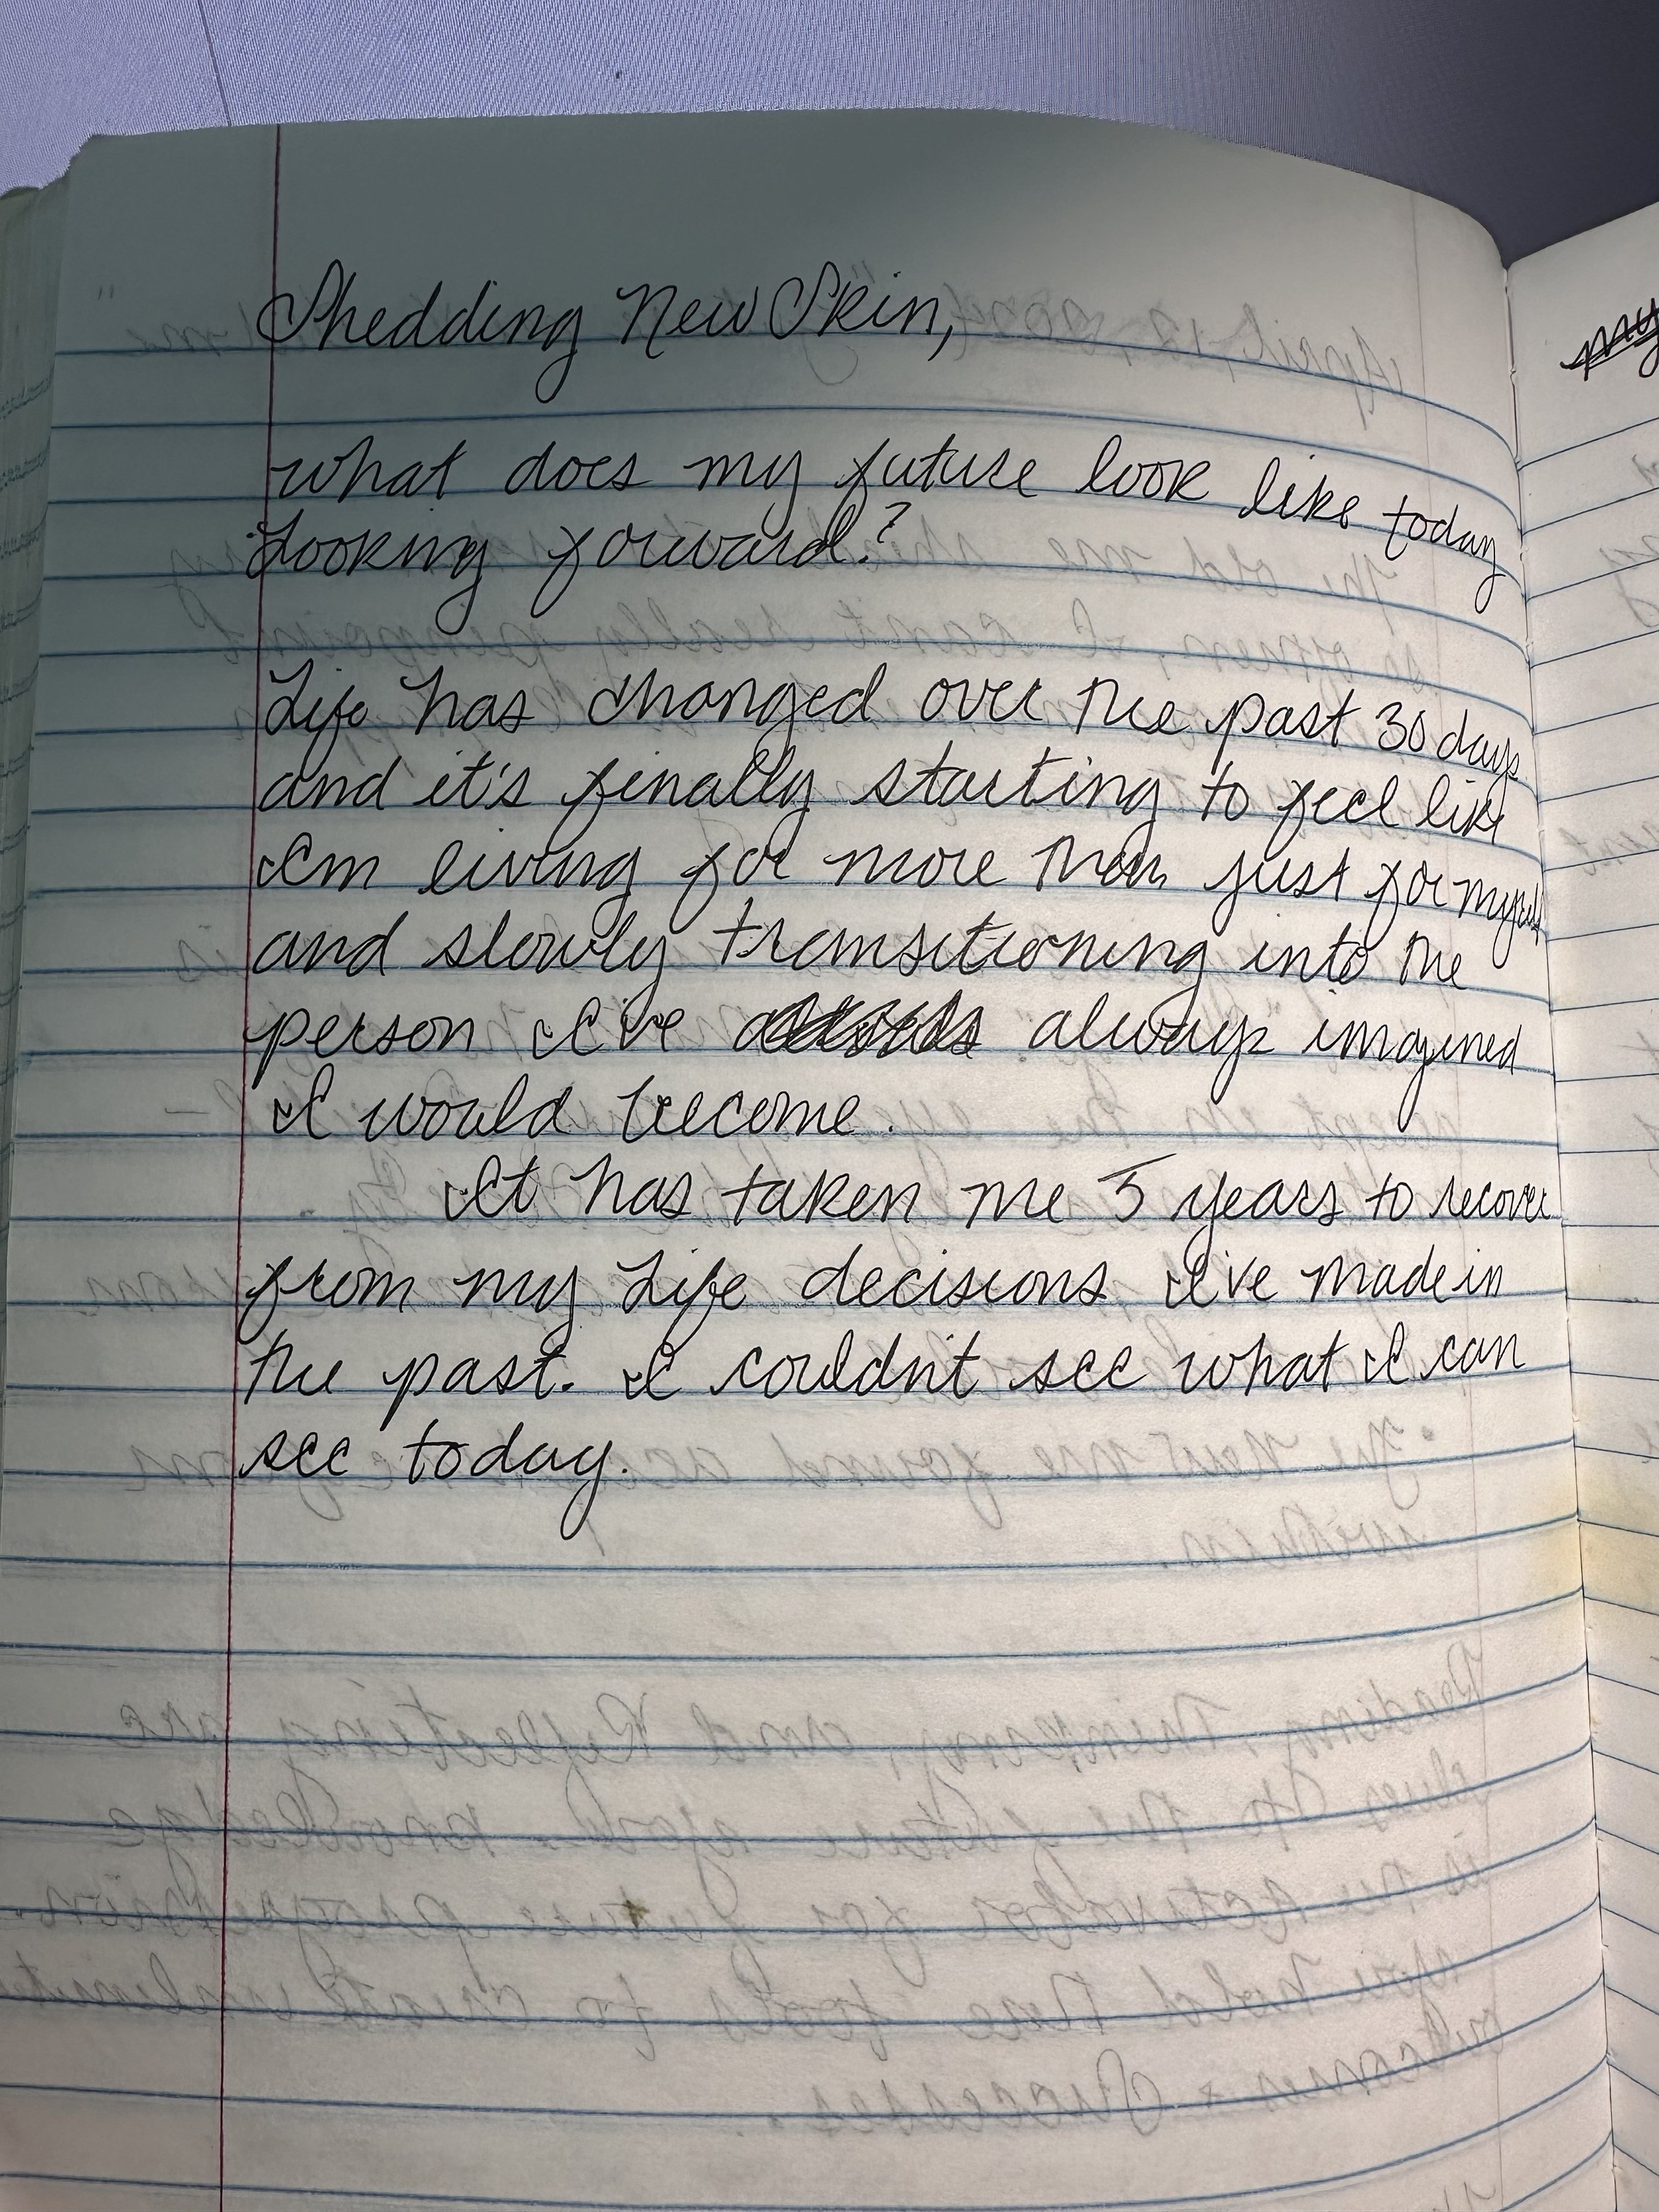 Shedding New Skin,
what does my future look like today
Looking forward?
Life has changed over the past 30 days
and it's finally starting to feel like
Im living for more than just for myself
and slowly transitioning into the
person I've always imagined
I would become.
It has taken me 5 years to recover
from my Life decisions I've made in
the past. I couldn't see what I can
see today.